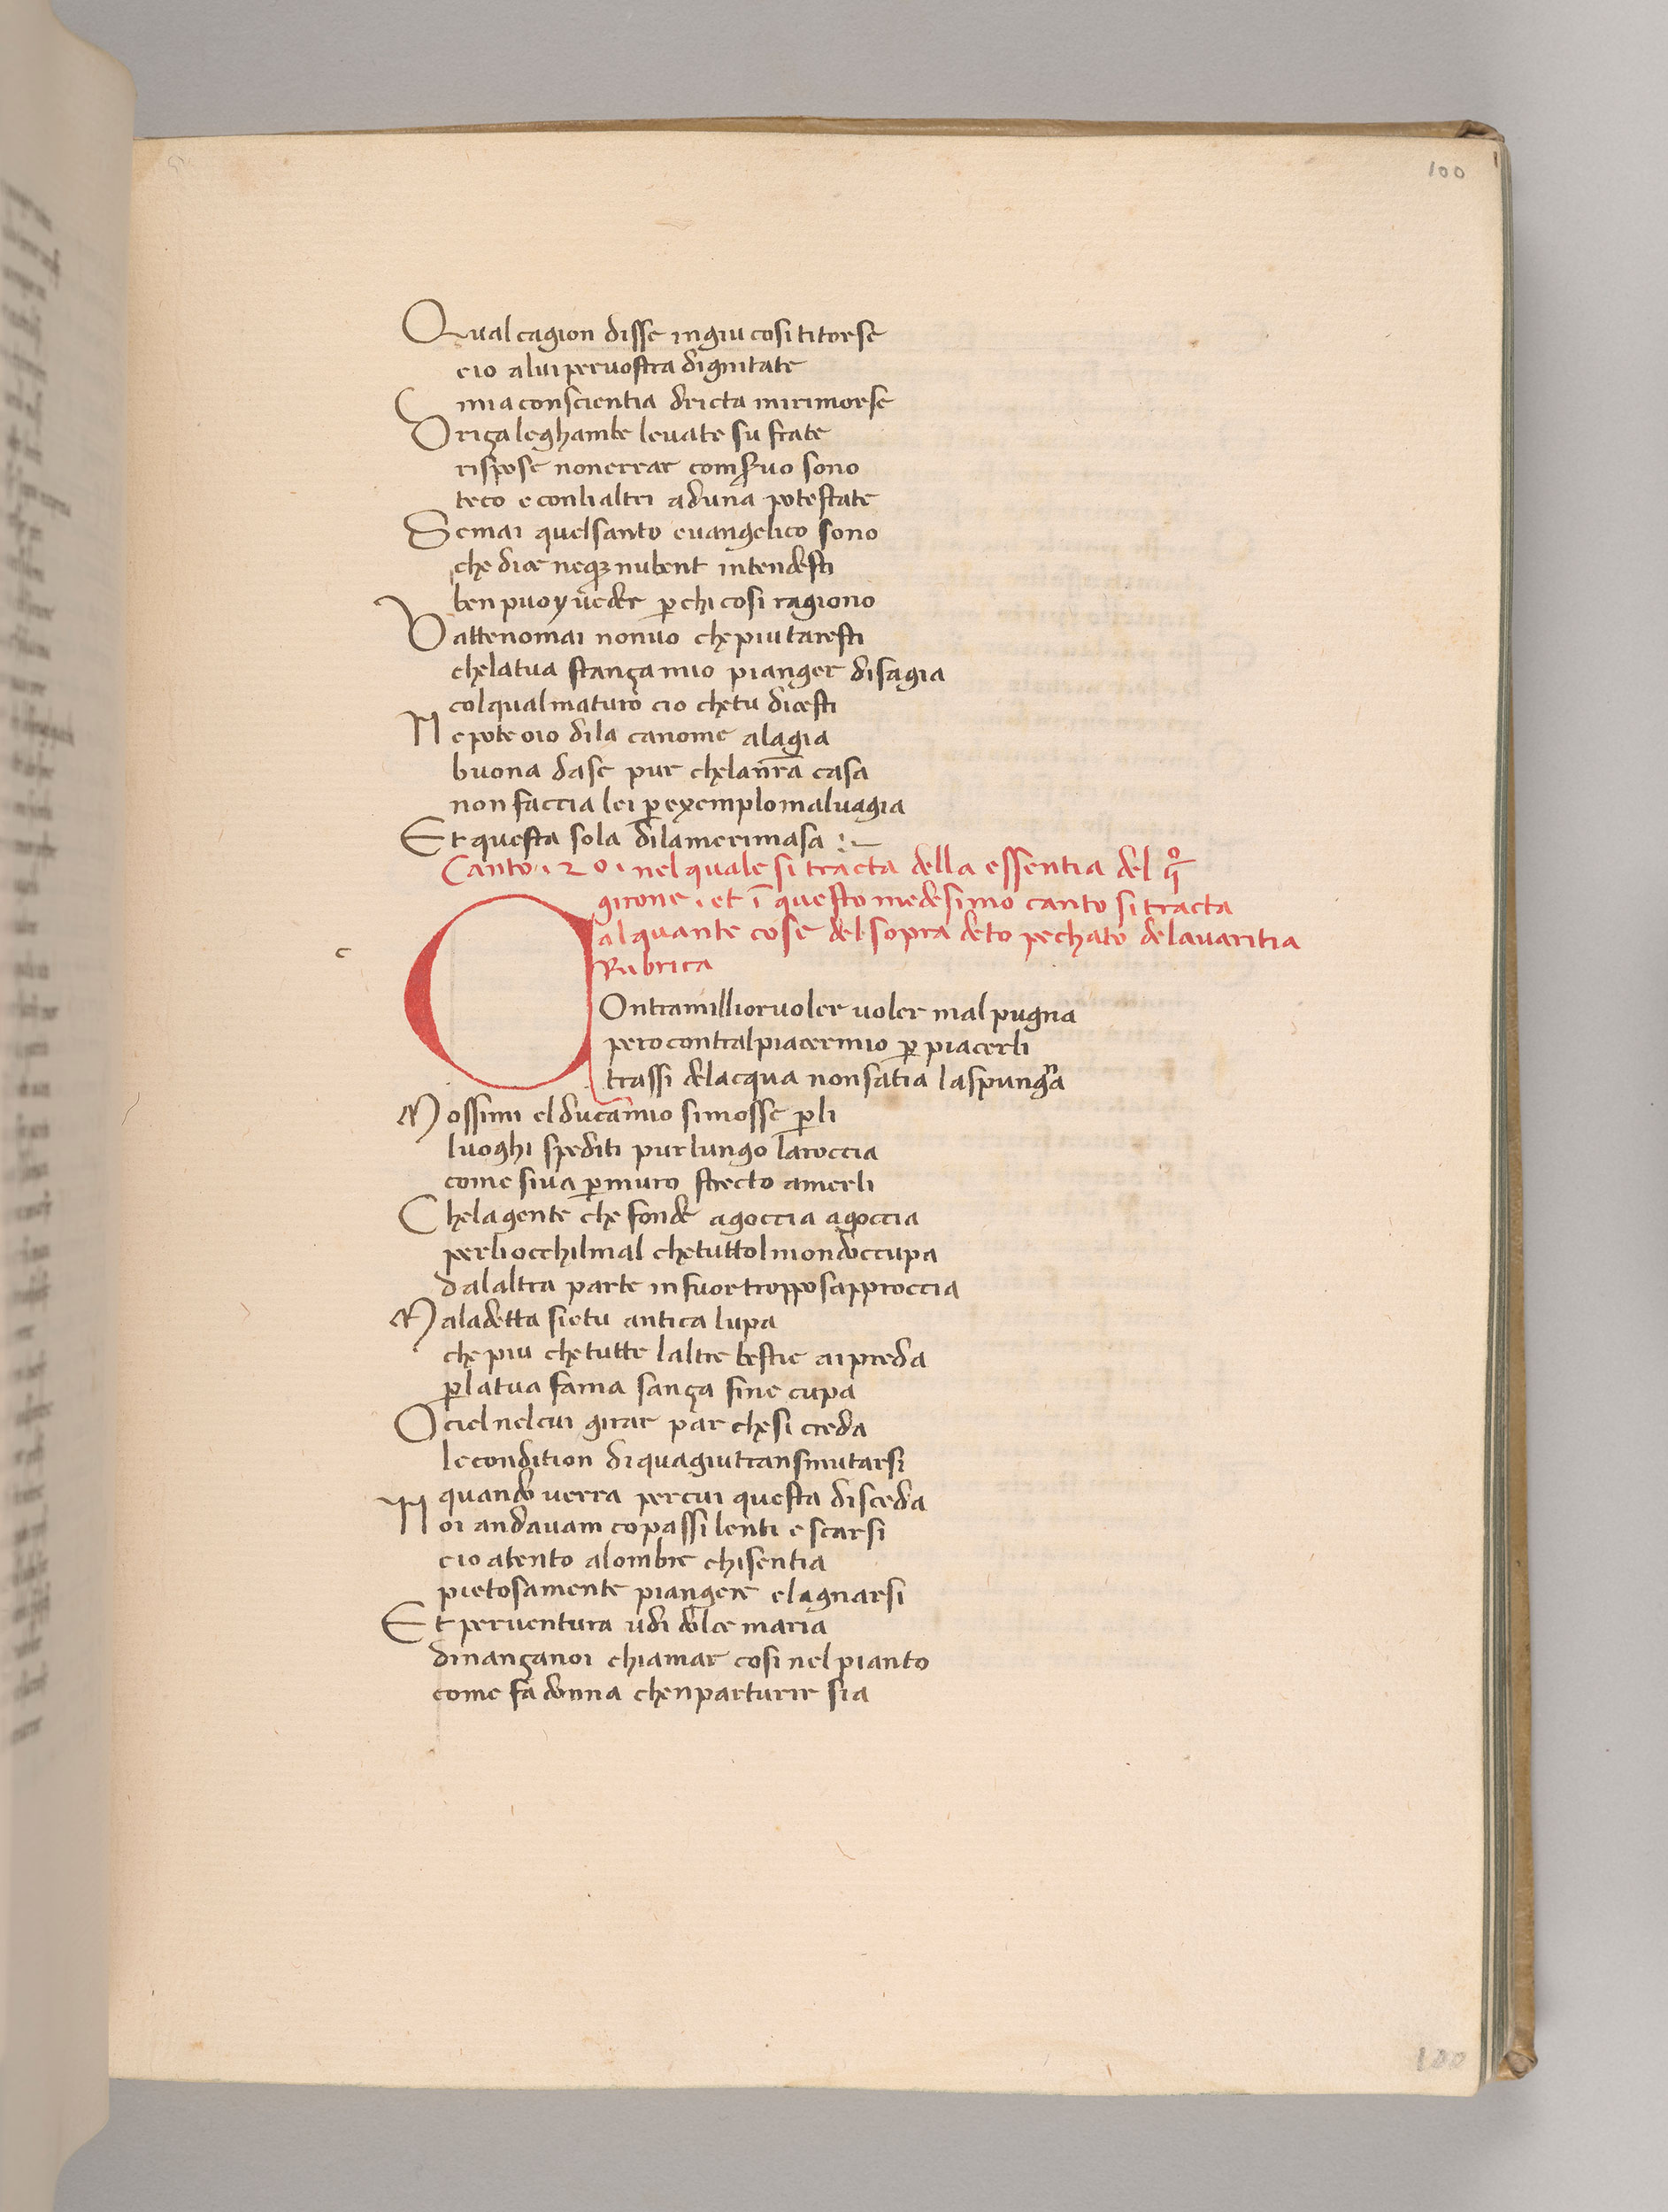 100
Qual cagion disse ingiu cosi titorse
eio alui per uostra dignitate
mia conscientia dricta mirimorse
Driça leghambe leuate su frate
rispose non errar conseruo sono
teco e conlialtri aduna potestate
Semai quel santo euangelico sono
che dice neqꝫ nubent intendesti
ben puoy ueder ꝑchi cosi ragiono
Vattenomai nonuo che piu taresti
chelatua stança mio pianger disagia
colqual maturo cio chetu dicesti
Nepote oio dila canome alagia
buona dase pur chelanr̄a casa
non faccia lei ꝑ exemplo maluagia
Et questa sola dilamerimasa
Canto . 20 . nel quale si tracta della essentia del qͦ
girone . et ī questo medesimo canto si tracta
alquante cose del sopra deto pechato delauaritia
Rubrica
c
Ontramillior uoler uoler mal pugna
pero contral piacer mio ꝑ piacerli
trassi delacqua non satia la spungna
Mossimi el ducamio simosse ꝑ li
luoghi spediti pur lungo laroccia
come siua ꝑ muro strecto amerli
Chelagente che fonde agoccia agoccia
perliocchilmal chetuttol mondoccupa
dalaltra parte in fuor troppo sapproccia
Maladetta sietu antica lupa
che piu chetutte laltre bestie ai preda
ꝑ latua fama sança fine cupa
O ciel nelcui girar par chesi creda
le condition di quagiu transmutarsi
quando uerra percui questa disceda
Noi andauam co passi lenti e scarsi
eio atento alombre chisentia
pietosamente piangere elagnarsi
Et peruentura udi dolce maria
dinançanoi chiamar cosi nel pianto
come fa donna chenparturir sia
100